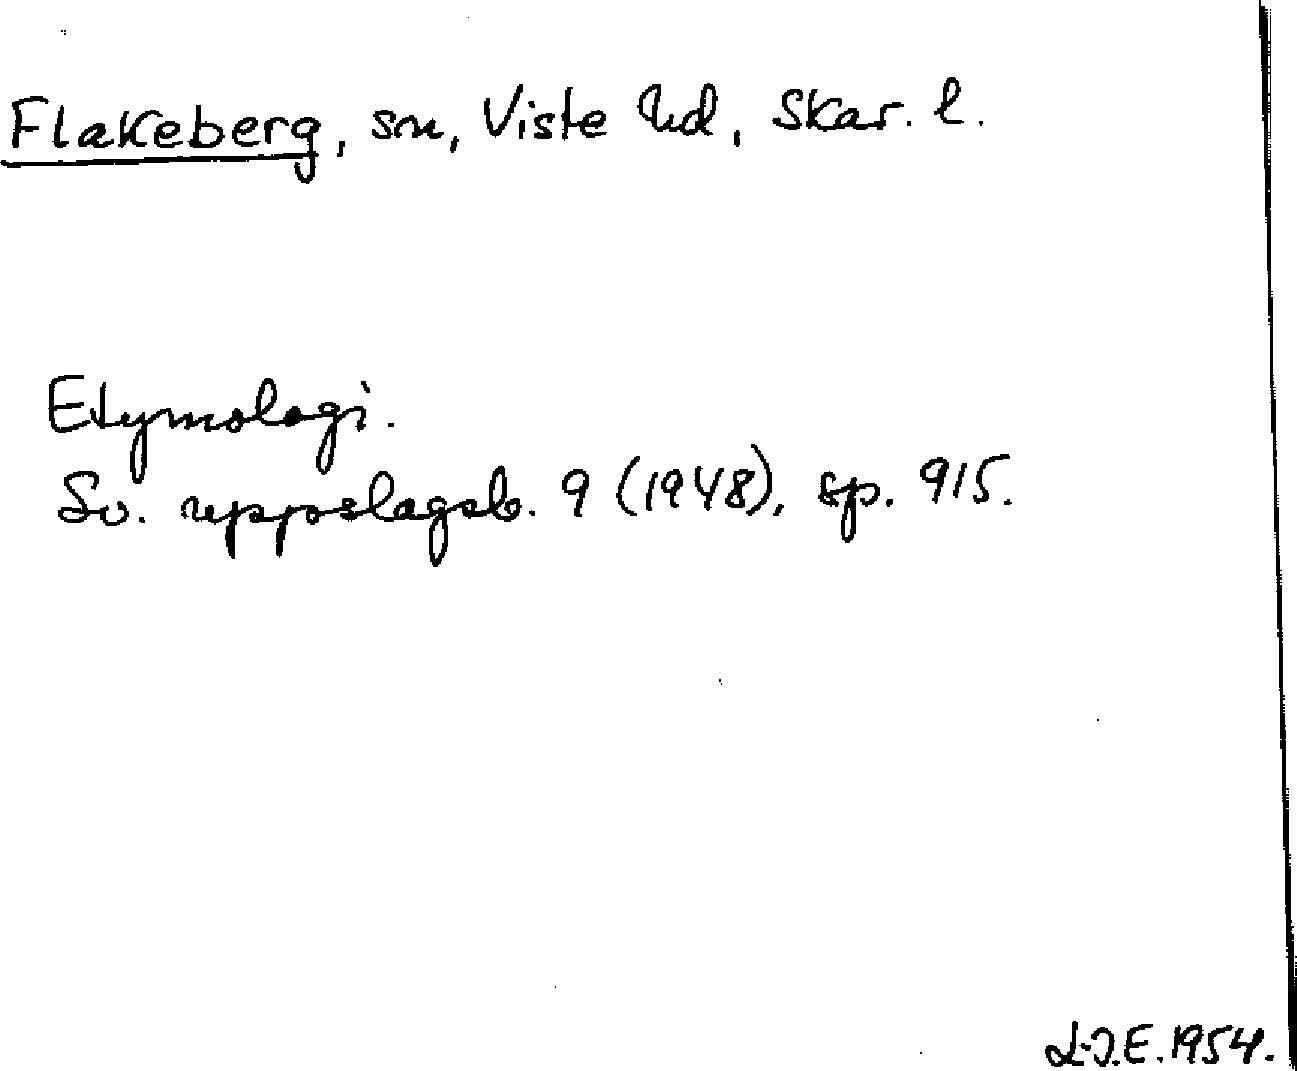 Flakeberg, sn, Viste hd, Skar. l.
Etymologi.
Sv. uppslagsb. 9 (1948), sp. 915.
L-J.E. 1954.